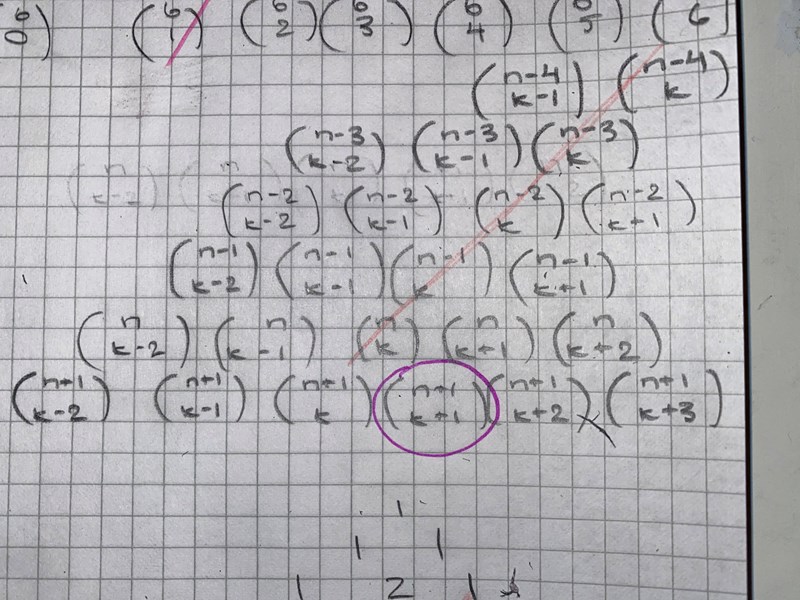 (6 0) (6 1) (6 2) (6 3) (6 4) (6 5) ( 6)
(n-4 k-1) (n-4 k)
(n-3 k-2) (n-3 k-1) (n-3 k)
(n-2 k-2) (n-2 k-1) (n-2 k) (n-2 k+1)
(n-1 k-2) (n-1 k-1) (n-1 k) (n-1 k+1)
(n k-2) (n k-1) (n k) (n k+1) (n k+2)
(n+1 k-2) (n+1 k-1) (n+1 k) (n+1 k+1) (n+1 k+2) (n+1 k+3)
1
1 1
1 2 1